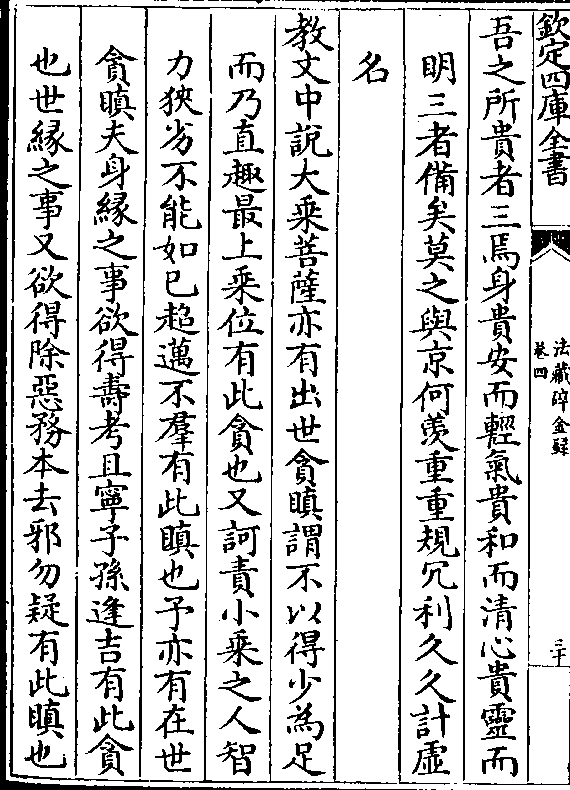 欽定四庫全書
法藏碎金録
卷四
三十
吾之所貴者三焉身貴安而輕氣貴和而清心貴靈而
明三者備矣莫之與京何羡重重規冗利久久計虛
名
教文中說大乘菩薩亦有出世貪瞋謂不以得少為足
而乃直趣最上乘位有此貪也又訶責小乘之人智
力狹劣不能如已超邁不羣有此瞋也予亦有在世
貪瞋夫身緣之事欲得壽考且寧子孫逢吉有此貪
也世緣之事又欲得除惡務本去邪勿疑有此瞋也